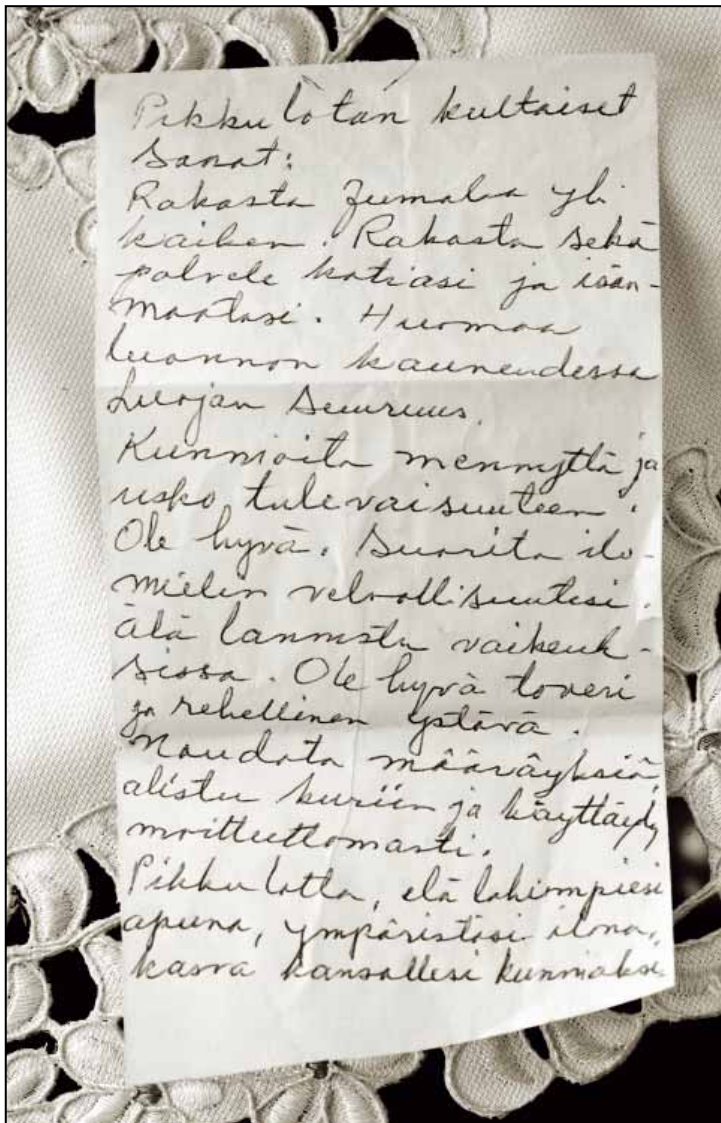 Pikku lotan kultaiset
sanat:
Rakasta Jumalaa yli
kaiken. Rakasta sekä
palvele kotiasi ja isän-
maatasi. Huomaa
luonnon kauneudessa
Luojan suuruus.
Kunnioita mennyttä ja
usko tulevaisuuteen.
Ole hyvä. Suorita ilo-
mielin velvollisuutesi.
älä lannistu vaikeuk-
sissa. Ole hyvä toveri
ja rehellinen ystävä.
Noudata määräyksiä,
alistu kuriin ja käyttäydy
moitteettomasti.
Pikku lotta, elä lähimpiesi
apuna, ympäristösi ilona,
kasva kansallesi kunniaksi.